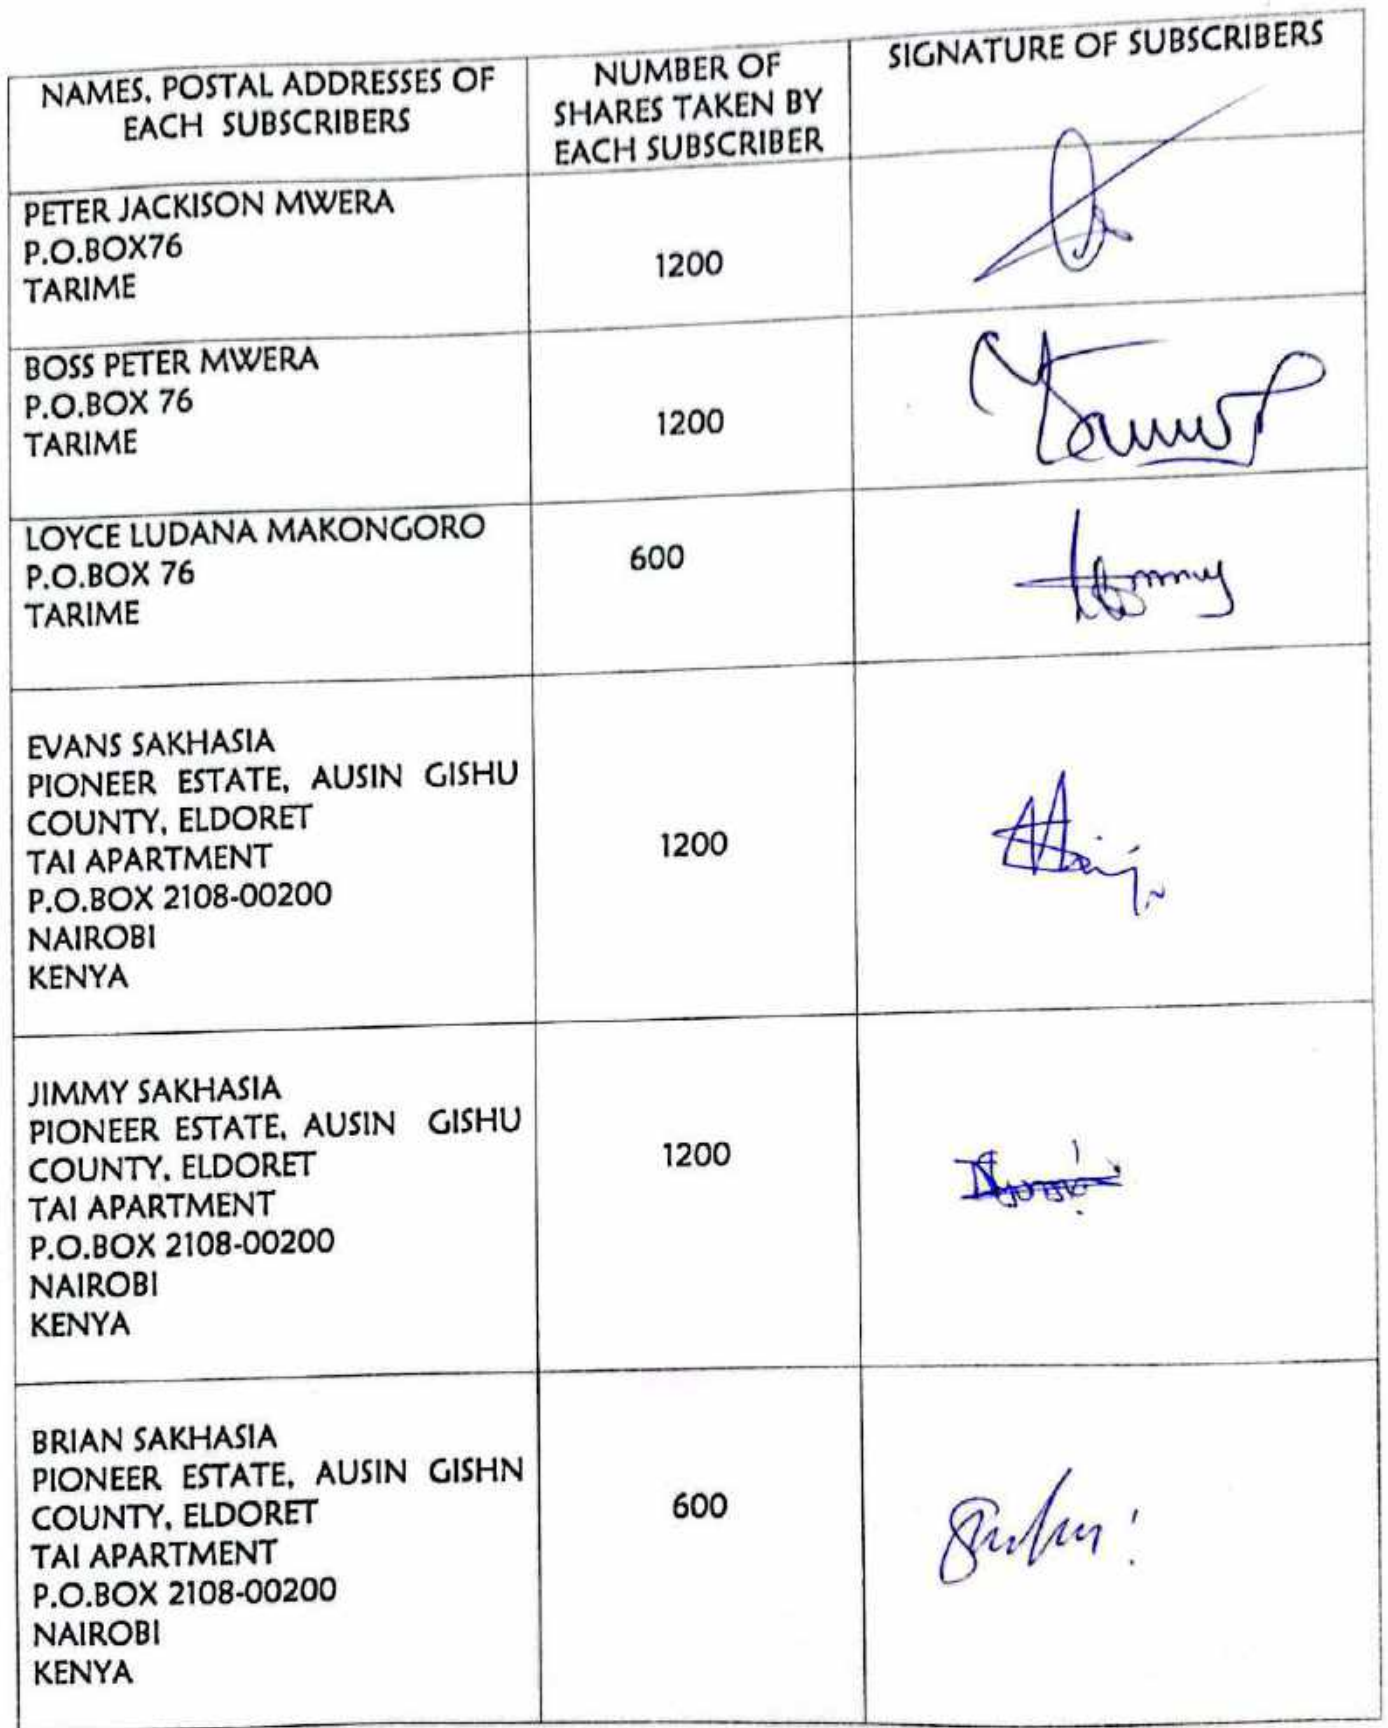 NAMES, POSTAL ADDRESSES OF
EACH SUBSCRIBERS
NUMBER OF
SHARES TAKEN BY
EACH SUBSCRIBER
SIGNATURE OF SUBSCRIBERS
PETER JACKISON MWERA
P.O.BOX76
TARIME
1200
BOSS PETER MWERA
P.O.BOX 76
TARIME
1200
LOYCE LUDANA MAKONGORO
P.O.BOX 76
TARIME
600
EVANS SAKHASIA
PIONEER ESTATE, AUSIN GISHU
COUNTY, ELDORET
TAI APARTMENT
P.O.BOX 2108-00200
NAIROBI
KENYA
1200
JIMMY SAKHASIA
PIONEER ESTATE, AUSIN GISHU
COUNTY, ELDORET
TAI APARTMENT
P.O.BOX 2108-00200
NAIROBI
KENYA
1200
BRIAN SAKHASIA
PIONEER ESTATE, AUSIN GISHN
COUNTY, ELDORET
TAI APARTMENT
P.O.BOX 2108-00200
NAIROBI
KENYA
600